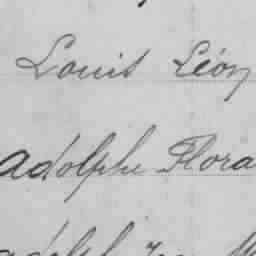 Louis Léon
Adolphe Flora